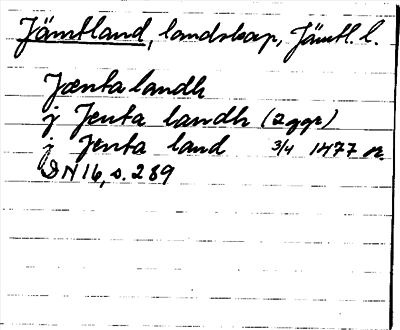 Jämtland, landskap, Jämtl. l.
Jænta landh
j Jenta landh (2 ggr)
j Jenta land 3/4 1477 or.
DN 16, s. 289